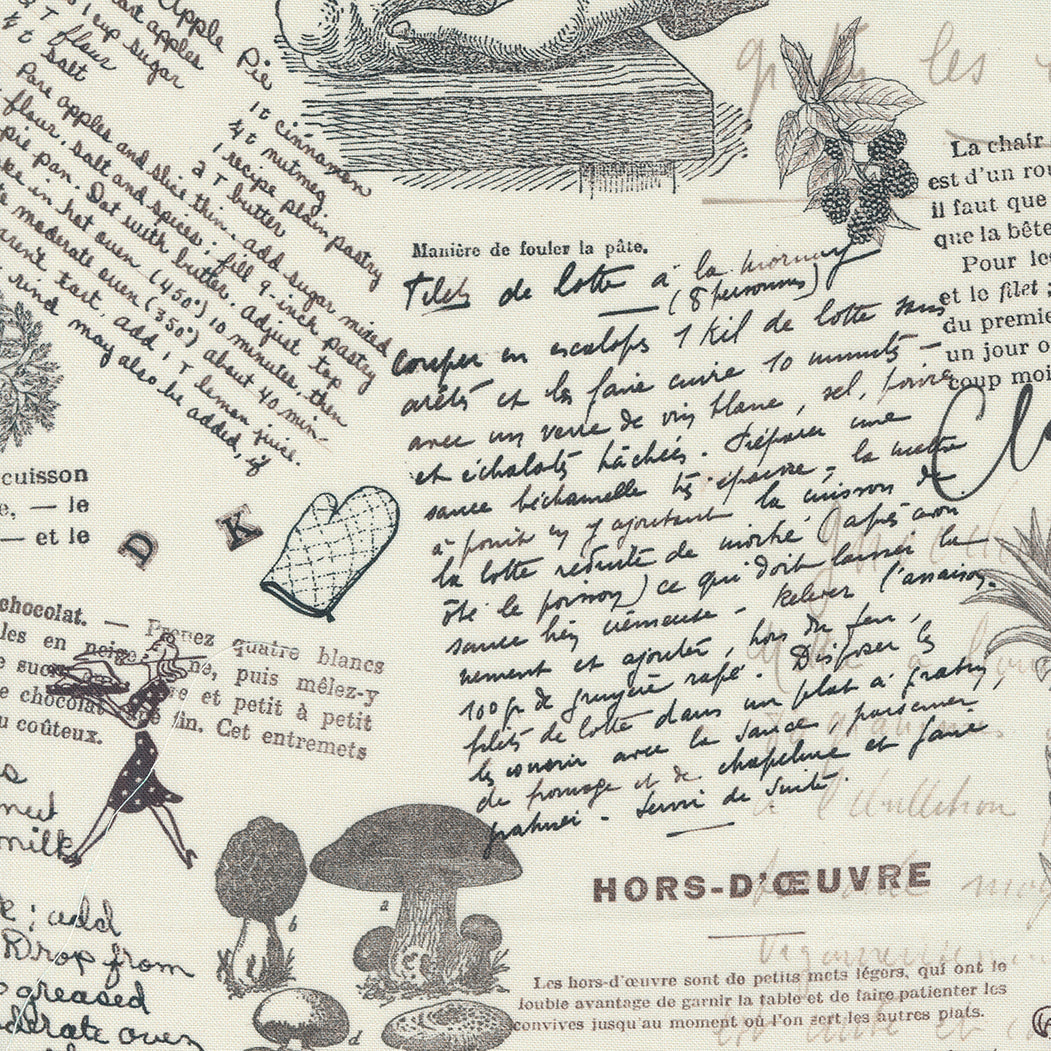 Apple Pie
tart apples
1 cup sugar
T flour
t salt
1 t cinnamon
¼ t nutmeg
1 recipe plain pastry
2 T butter
Pare apples and slice thin. add sugar mixed
flour, salt and spices; fill 9-inch pastry
pie pan. Dot with butter. Adjust top
in hot oven (450°) 10 minutes, then
moderate oven (350°) about 40 min-
tart, add 1 T lemon juice.
rind may also be added, if
Manière de fouler la pâte.
Filets de lotte à la mornay
(8 personnes)
couper en escalops 1 kil de lotte sans
arêtes et les faire cuire 10 minutes –
avec un verre de vin blanc, sel, poivre
et échalots hâchées. Préparer une
sauce béchamelle très épaisse, la mettre
à point en y ajoutant la cuisson de
la lotte réduite de moitié (après avoir
ôté le poisson) ce qui doit laisser la
sauce très crémeuse – Relever l'assaison-
nement et ajouter, hors du feu,
100 gr de gruyère rapé. Disposer les
filets de lotte dans un plat à gratin,
les couvrir avec la sauce, parsemer
de fromage et de chapelure et faire
gratiner – Servir de suite.
La chair
est d'un rou
il faut que
que la bête
Pour les
et le filet ;
du premie
un jour o
coup moi
les
Cl
cuisson
e, — le
— et le
D K
chocolat. — Prenez quatre blancs
les en neige, puis mêlez-y
e sucre et petit à petit
e chocolat fin. Cet entremets
u coûteux.
milk
; add
Drop from
greased
moderate oven
a
b
d
l'ébullition
HORS-D'ŒUVRE
Les hors-d'œuvre sont de petits mets légers, qui ont le
double avantage de garnir la table et de faire patienter les
convives jusqu'au moment où l'on sert les autres plats.